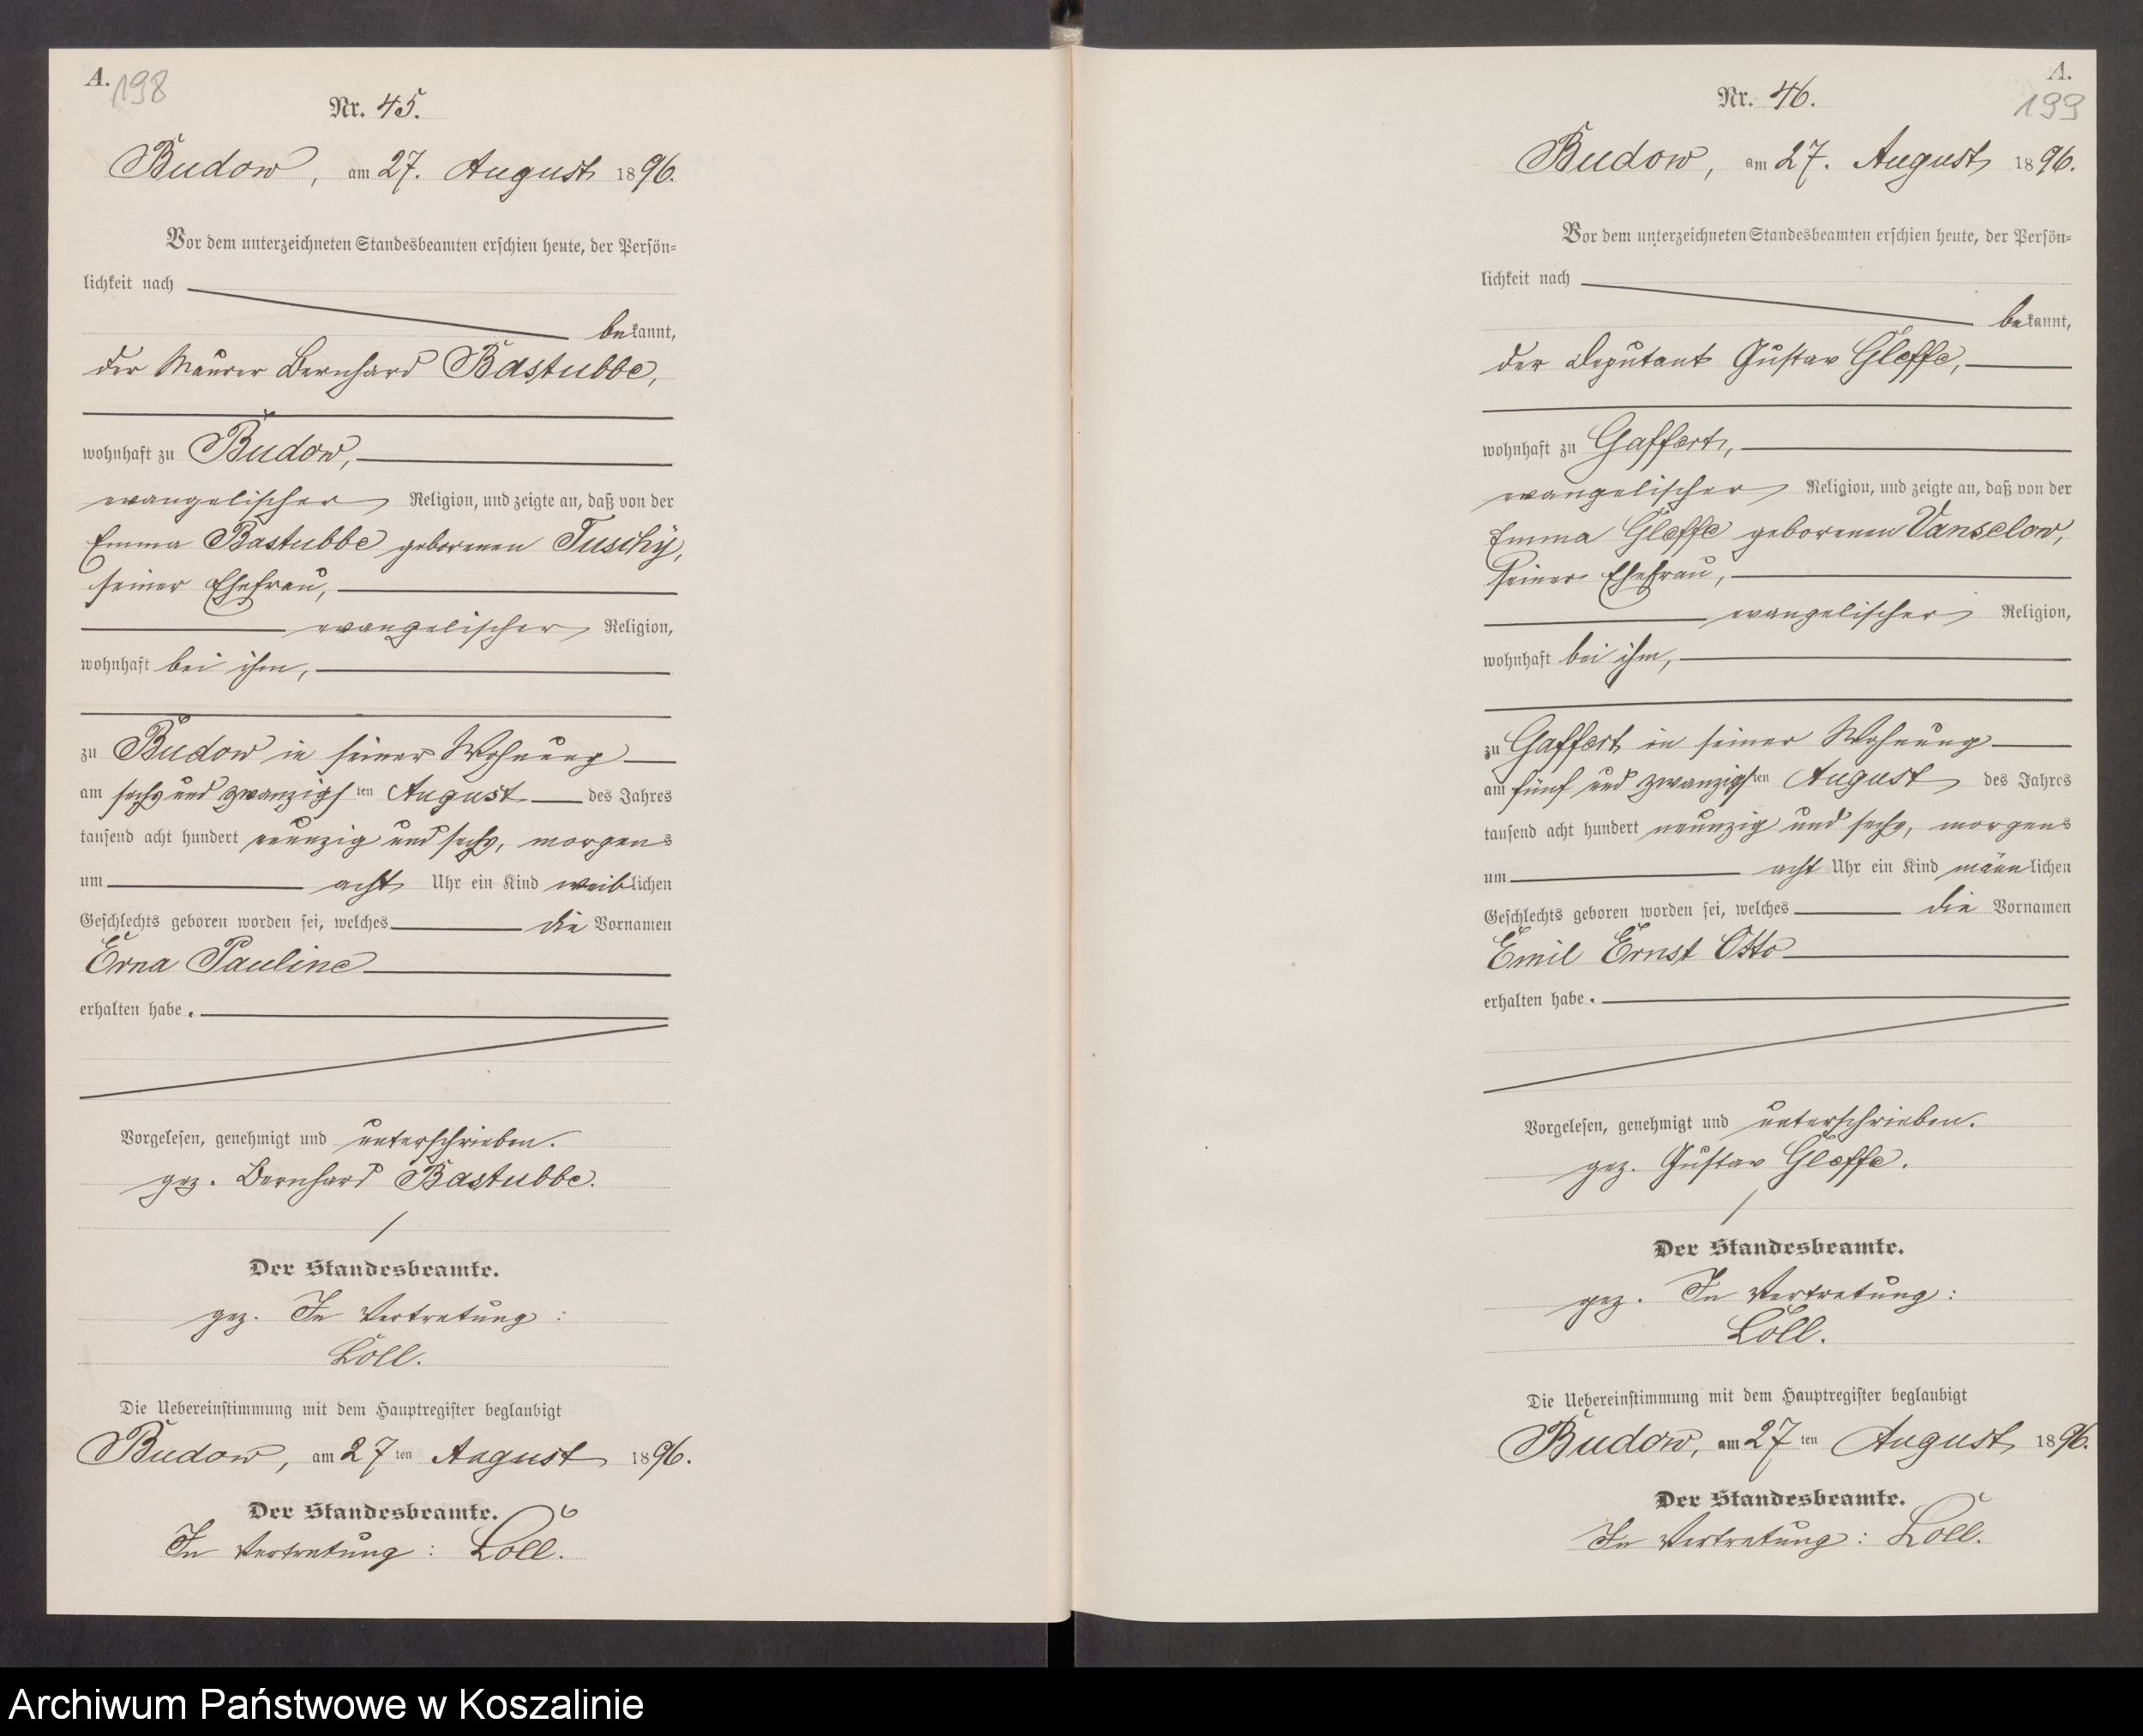 A.
198
Nr. 45.
Budow, am 27. August 1896.
Vor dem unterzeichneten Standesbeamten erschien heute, der Persön-
lichkeit nach
bekannt,
der Maurer Bernhard Bastubbe,
wohnhaft zu Budow,
evangelischer Religion, und zeigte an, daß von der
Emma Bastubbe geborenen Tuschÿ,
seiner Ehefrau,
evangelischer Religion,
wohnhaft bei ihm,
zu Budow in seiner Wohnung
am sechs und zwanzigsten August des Jahres
tausend acht hundert neunzig und sechs, morgens
um acht Uhr ein Kind weiblichen
Geschlechts geboren worden sei, welches die Vornamen
Erna Pauline
erhalten habe.
Vorgelesen, genehmigt und unterschrieben.
gez. Bernhard Bastubbe.
Der Standesbeamte.
gez. In Vertretung:
Loll.
Die Uebereinstimmung mit dem Hauptregister beglaubigt
Budow, am 27ten August 1896.
Der Standesbeamte.
In Vertretung: Loll.
A.
199
Nr. 46.
Budow, am 27. August 1896.
Vor dem unterzeichneten Standesbeamten erschien heute, der Persön-
lichkeit nach
bekannt,
der Deputant Gustav Gleffe,
wohnhaft zu Gaffert,
evangelischer Religion, und zeigte an, daß von der
Emma Gleffe geborenen Vanselow,
seiner Ehefrau,
evangelischer Religion,
wohnhaft bei ihm,
zu Gaffert in seiner Wohnung
am fünf und zwanzigsten August des Jahres
tausend acht hundert neunzig und sechs, morgens
um acht Uhr ein Kind männlichen
Geschlechts geboren worden sei, welches die Vornamen
Emil Ernst Otto
erhalten habe.
Vorgelesen, genehmigt und unterschrieben.
gez. Gustav Gleffe.
Der Standesbeamte.
gez. In Vertretung:
Loll.
Die Uebereinstimmung mit dem Hauptregister beglaubigt
Budow, am 27ten August 1896.
Der Standesbeamte.
In Vertretung: Loll.
Archiwum Państwowe w Koszalinie